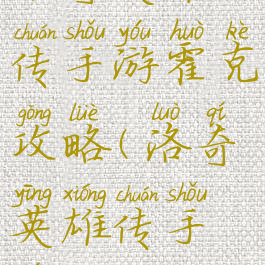 chuán shǒu yóu huò kè
传手游霍克
gōng lüè luò qí
攻略(洛奇
yīng xióng chuán shǒu
英雄传手